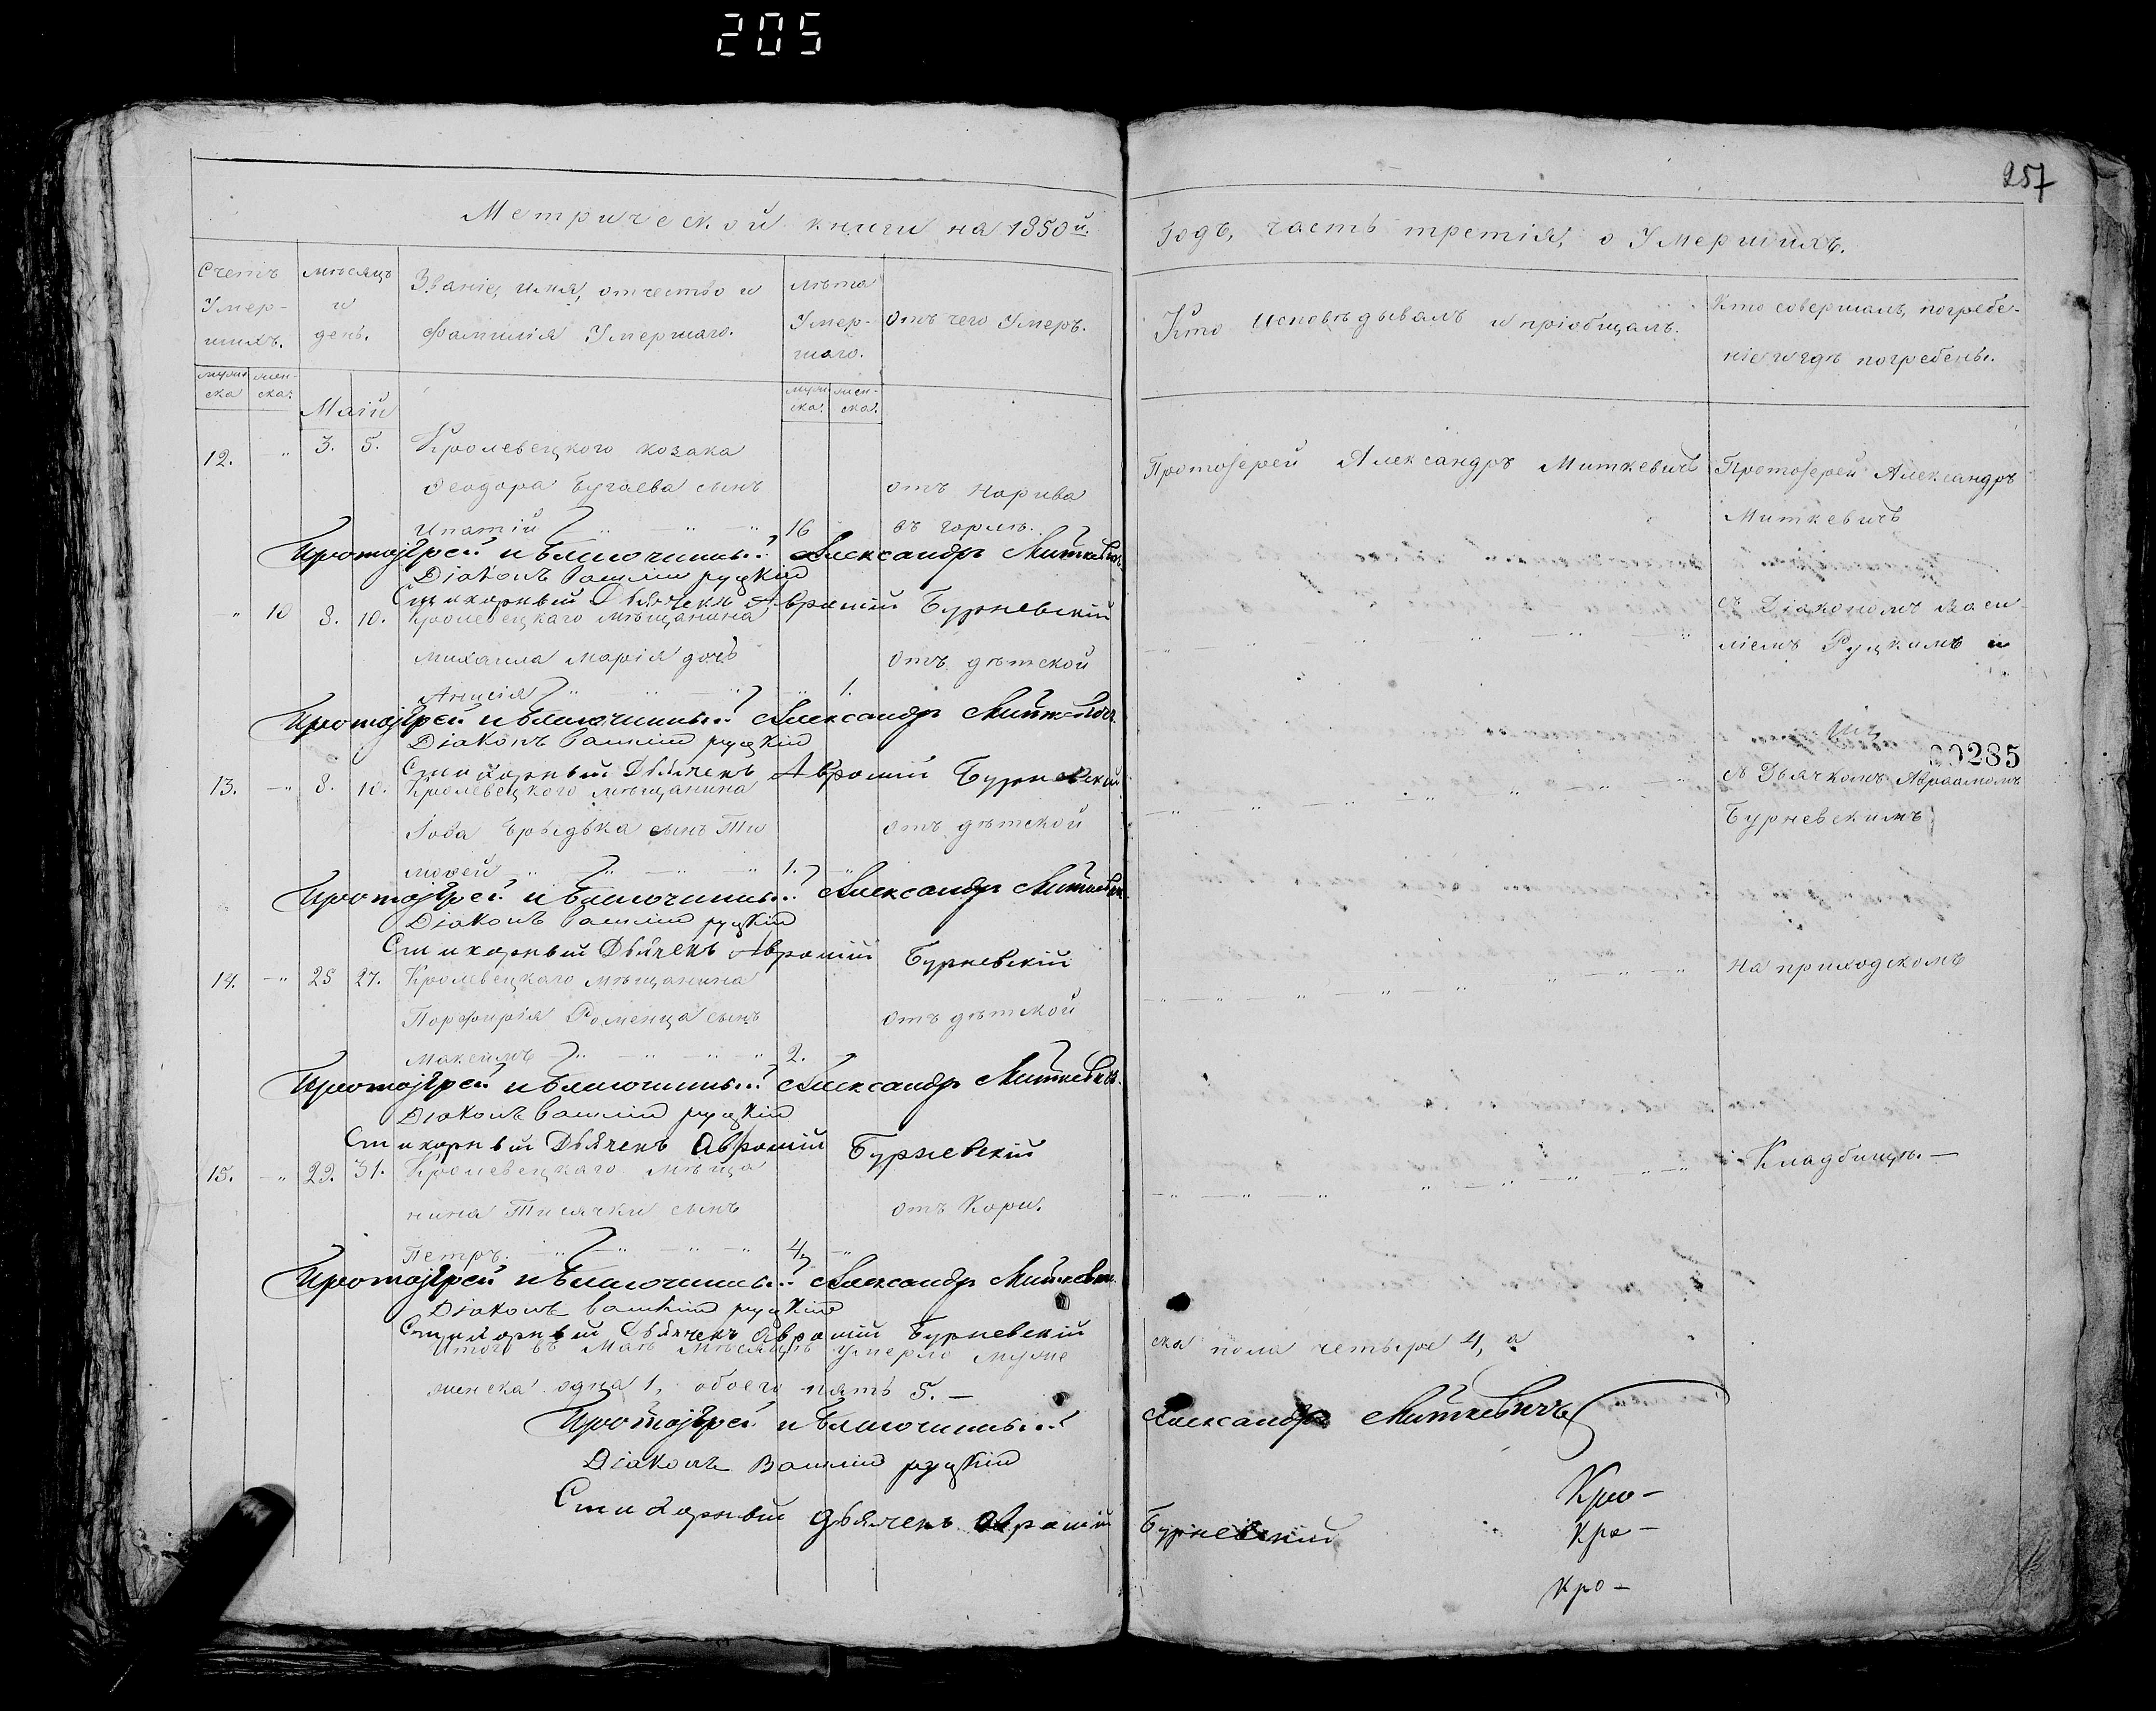 205
257
Метрической книги на 1850й.
Годъ, часть третія, о Умершихъ.
Счетъ Умер-шихъ.
мужеска
женска.
мѣсяцъ и день.
Званіе, имя, отчество и
фамилія Умершаго.
лѣта Умер-шаго.
мужеска.
женска.
отъ чего Умеръ.
Кто исповѣдывалъ и пріобщалъ.
Кто совершалъ погребе-
ніе и гдѣ погребены.
Маій
12. " 3. 5. Кролевецкого козака
Феодора Бугаева сынъ отъ нарива
Ипатій 16 въ горлѣ.
Протоіерей Александръ Миткевичъ
Протоіерей Александръ
Миткевичъ
Протоіерей и благочинный Александръ Миткевичъ.
Діаконъ Василій руцкій
Стихарный Дьячекъ Аврамій Бурневскій
" 10 8. 10. Кролевецкаго мѣщанина
Михаила дочь отъ дѣтской
Анисія 1.
съ Діакономъ Васи-
ліемъ Руцкимъ и
Протоіерей и благочинный Александръ Миткевичъ.
Діаконъ Василій руцкій
Стихарный Дьячекъ Аврамій Бурневскій
00285
13. 8. 10. Кролевецкого мѣщанина
сынъ Ти отъ дѣтской
мофей 1.
съ Дьячкомъ Авраамомъ
Бурневскимъ
Протоіерей и благочинный Александръ Миткевичъ.
Діаконъ Василій руцкій
Стихарный Дьячекъ Аврамій Бурневскій
14. 25 27. Кролевецкаго мѣщанина
Порфирія Роменца сынъ отъ дѣтской
Максимъ 2.
На приходскомъ
Протоіерей и благочинный Александръ Миткевичъ.
Діаконъ Василій руцкій
Стихарный Дьячекъ Аврамій Бурневскій
15. 29. 31. Кролевецкаго мѣща
нина Тисячки сынъ отъ Кори.
Петръ. 4.
Кладбищѣ. —
Протоіерей и благочинный Александръ Миткевичъ.
Діаконъ Василій руцкій
Стихарный Дьячекъ Аврамій Бурневскій
Итого въ Маѣ мѣсяцѣ умерло муже
ска пола четыре 4, а
женска одна 1, обоего пять 5. —
Протоіерей и благочинный Александръ Миткевичъ
Діаконъ Василій руцкій
Кро-
Стихарный дьячекъ Аврамій Бурневскій
Кро-
Кро-